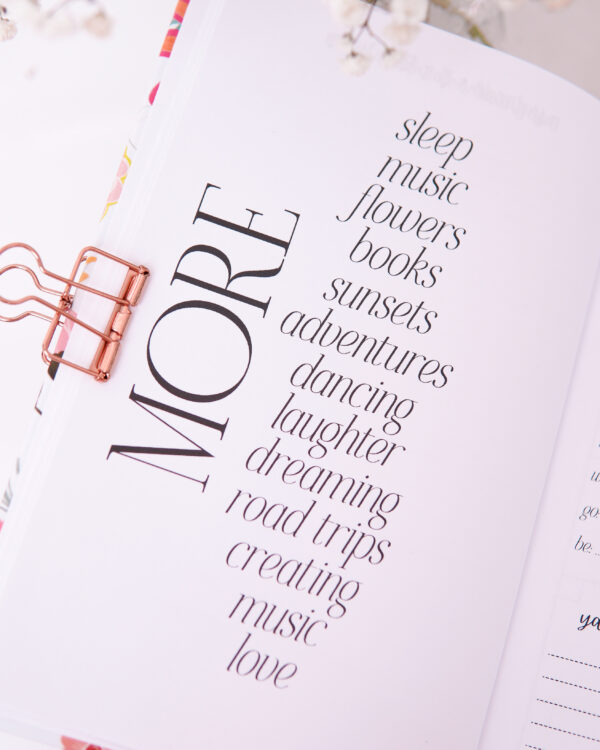 MORE
sleep
music
flowers
books
sunsets
adventures
dancing
laughter
dreaming
road trips
creating
music
love
go:
be: ...